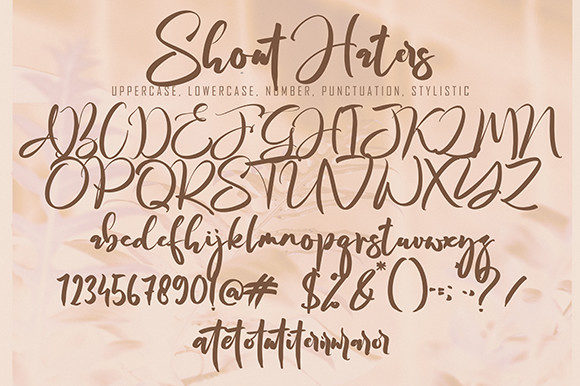 Shout Haters
UPPERCASE, LOWERCASE, NUMBER, PUNCTUATION, STYLISTIC
ABCDEFGHIJKLMN
OPQRSTUVWXYZ
abcdefghijklmnopqrstuvwxyz
1234567890!@# $%&*()
atetotutiteriruraror